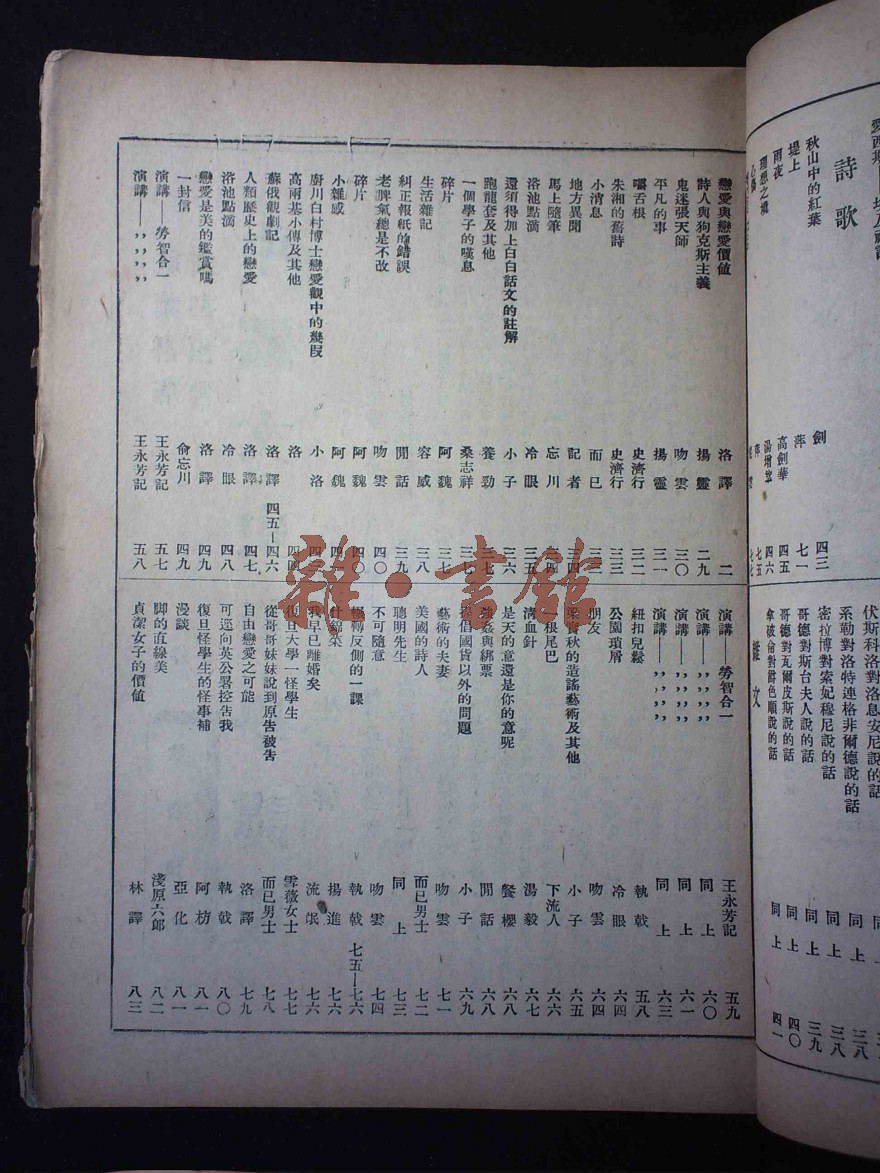 詩歌
秋山中的紅葉 劍 四三
堤上 萍 七一
雨夜 高劍華 四五
理想之 湯增 四六
伏斯科洛對洛息安尼說的話 同上
系勒對洛特連格非爾德說的話 同上 三八
密拉博對索妃穆尼說的話 同上 三八
哥德對斯台夫人說的話 同上 三九
哥德對瓦爾皮斯說的話 同上 四〇
拿破侖對爵色順說的話 同上 四一
雜文
戀愛與戀愛價値 洛譯 二
詩人與狗克斯主義 揚靈 二九
鬼迷張天師 吻雲 三〇
平凡的事 揚靈 三一
嚼舌根 史濟行 三二
朱湘的舊詩 史濟行 三三
小消息 而已 三三
地方異聞 記者 三四
馬上隨筆 忘川 三四
洛池點滴 冷眼 三五
還須得加上白白話文的註解 小子 三六
跑龍套及其他 養勁 三七
一個學子的嘆息 桑志祥 三七
碎片 阿魏 三七
生活雜記 容威 三八
糾正報紙的錯誤 閒話 三九
老脾氣總是不改 吻雲 四〇
碎片 阿魏 四〇
小雜感 阿魏
廚川白村博士戀愛觀中的 小洛
高爾基小傳及其他 洛 四四
蘇俄觀劇記 洛譯 四五—四六
人類歷史上的戀愛 洛譯 四七
洛池點滴 冷眼 四八
戀愛是美的鑑賞嗎 洛譯 四九
一封信 俞忘川 四九
演講 勞智合一 王永芳記 五七
演講 ，，，， 王永芳記 五八
演講——勞智合一 王永芳記 五九
演講——，，，， 同上 六〇
演講——，，，， 同上 六一
演講——，，，， 同上 六三
紐扣兒鬆 執戟 五八
公園瑣屑 冷眼 六四
朋友 吻雲 六四
梁實秋的造謠藝術及其他 小子 六五
一根尾巴 下流人 六六
淸血針 湯毅 六七
是天的意還是你的意呢 餐櫻 六八
強姦與綁票 閒話 六八
提倡國貨以外的問題 小子 六九
藝術的夫妻 吻雲 七一
美國的詩人 而已男士 七二
聰明先生 同上 七三
不可隨意 吻雲 七四
輾轉反側的一課 執戟 七五—七六
什錦菜 揚進 七六
我早已離婚矣 流氓 七六
復旦大學一怪學生 雪薇女士 七七
從哥哥妹妹說到原告被告 而已男士 七八
自由戀愛之可能 洛譯 七九
可逕向英公署控告我 執戟 八〇
復旦怪學生的怪事補 阿枋 八一
漫談 亞化 八一
脚的直線美 淺原六郎 八二
貞潔女子的價値 林譯 八三
雜·書館